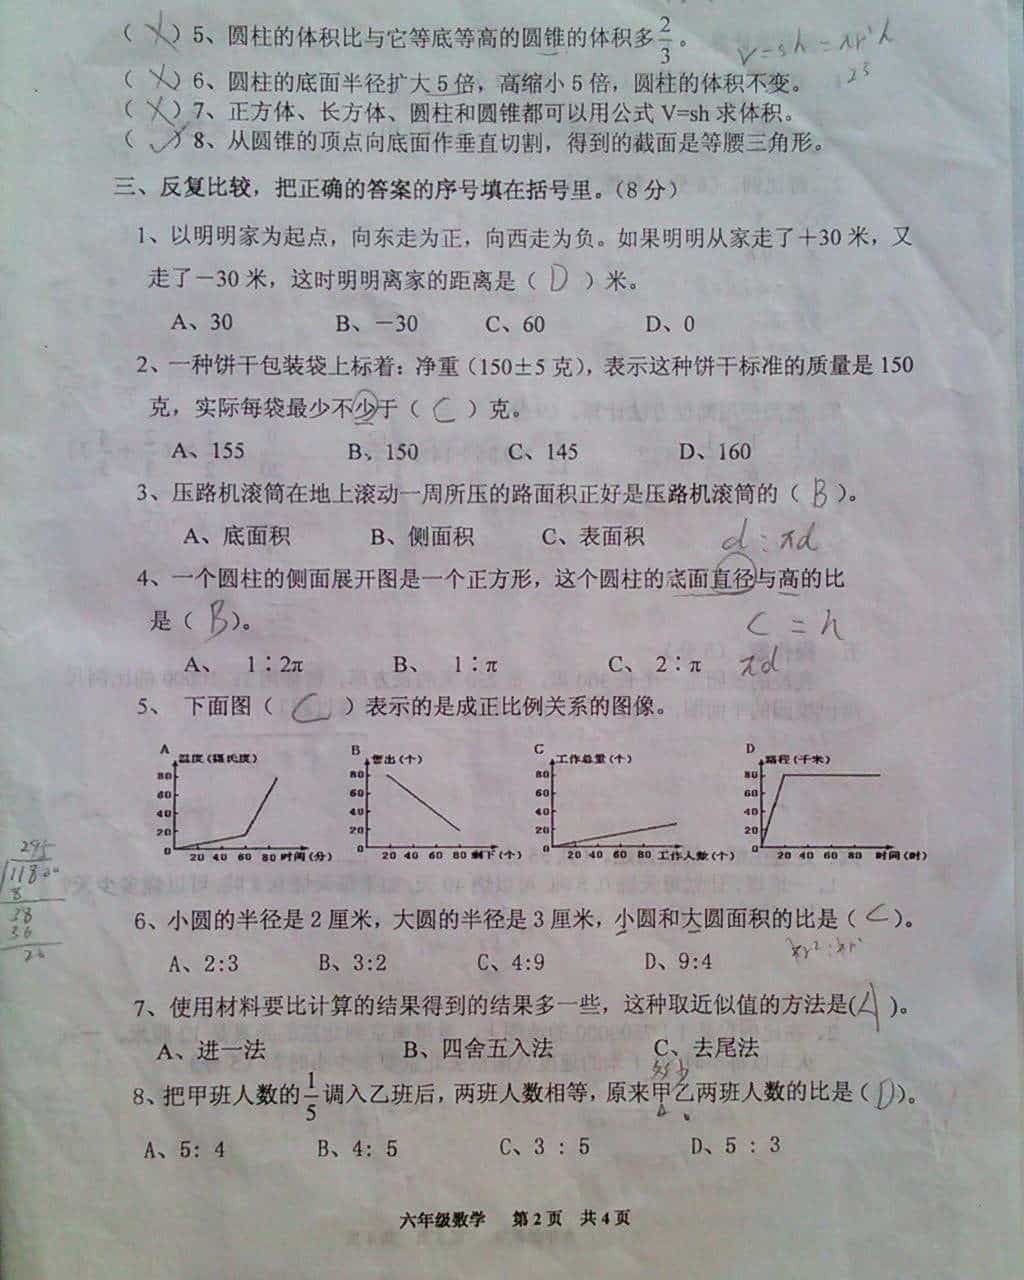 (×)5、圆柱的体积比与它等底等高的圆锥的体积多2/3。 V=sh=πr²h
(×)6、圆柱的底面半径扩大5倍，高缩小5倍，圆柱的体积不变。
(×)7、正方体、长方体、圆柱和圆锥都可以用公式V=sh求体积。
(✓)8、从圆锥的顶点向底面作垂直切割，得到的截面是等腰三角形。
三、反复比较，把正确的答案的序号填在括号里。(8分)
1、以明明家为起点，向东走为正，向西走为负。如果明明从家走了＋30米，又
走了－30米，这时明明离家的距离是（D）米。
A、30 B、－30 C、60 D、0
2、一种饼干包装袋上标着：净重（150±5克），表示这种饼干标准的质量是150
克，实际每袋最少不少于（C）克。
A、155 B、150 C、145 D、160
3、压路机滚筒在地上滚动一周所压的路面积正好是压路机滚筒的（B）。
A、底面积 B、侧面积 C、表面积 d:πd
4、一个圆柱的侧面展开图是一个正方形，这个圆柱的底面直径与高的比
是（B）。 C=h
A、 1∶2π B、 1∶π C、 2∶π πd
5、 下面图（C）表示的是成正比例关系的图像。
A 温度(摄氏度) B 售出(个) C 工作总量(个) D 路程(千米)
80 80 80 80
60 60 60 60
40 40 40 40
20 20 20 20
0 20 40 60 80 时间(分) 0 20 40 60 80 剩下(个) 0 20 40 60 工作人数(个) 0 20 40 60 80 时间(时)
295
11800
8
38
36
20
6、小圆的半径是2厘米，大圆的半径是3厘米，小圆和大圆面积的比是（C）。
A、2:3 B、3:2 C、4:9 D、9:4
7、使用材料要比计算的结果得到的结果多一些，这种取近似值的方法是(A)。
A、进一法 B、四舍五入法 C、去尾法
8、把甲班人数的1/5调入乙班后，两班人数相等，原来甲乙两班人数的比是（D）。
A、5：4 B、4：5 C、3：5 D、5：3
六年级数学 第2页 共4页